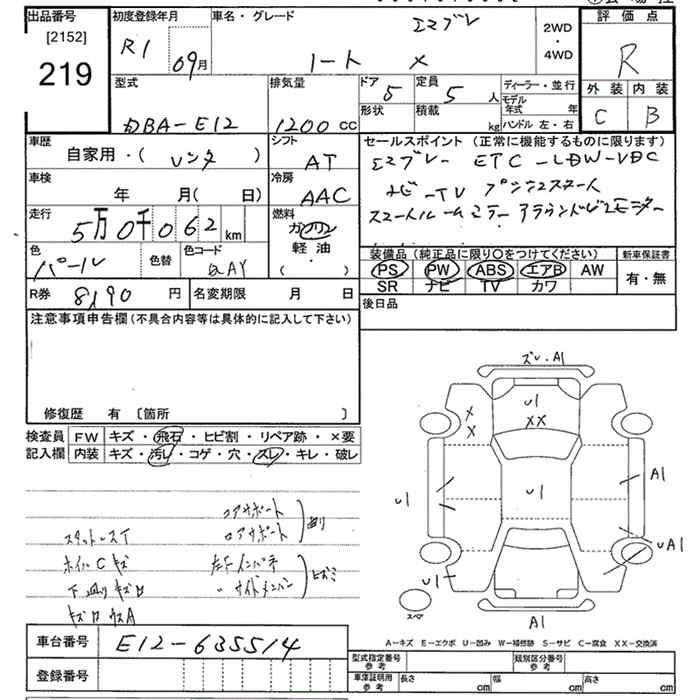 出品番号 初度登録年月 車名・グレード エマブレ 2WD・4WD 評価点
[2152] R1 09月 ノート X R
219 外装 内装
型式 排気量 ドア 5 定員 5人 ディーラー・並行 C B
DBA-E12 1200cc 形状 積載 kg モデル年式 年
ハンドル 左・右
車歴 シフト セールスポイント(正常に機能するものに限ります)
自家用・(レンタ) AT エマブレー ETC-LDW-VDC
車検 冷房 ナビ-TV プッシュスタート
年 月(日) AAC スマートルームミラー アラウンドビューモニター
走行 燃料
5万0千062km ガソリン
軽油
・
( )
色 色替 色コード 装備品(純正品に限り○をつけてください) 新車保証書
パール QAY PS PW ABS エアB AW 有・無
SR ナビ TV カワ
R券 8,190円 名変期限 月 日 後日品
注意事項申告欄(不具合内容等は具体的に記入して下さい)
修復歴 有 [箇所 ]
検査員 FW キズ・飛石・ヒビ割・リペア跡・×要
記入欄 内装 キズ・汚レ・コゲ・穴・スレ・キレ・破レ
ズレ・A1
U1
XX
X
X
U1
U1
A1
UA1
U1
スペア
A1
コアサポート
ロアサポート あり
スタットレスT
ホイルCキズ 左F インパネ
下廻りキズロ 〃 サイドメンバー ヒズミ
キズロ ウスA
A-キズ E-エクボ U-凹み W-補修跡 S-サビ C-腐食 XX-交換済
車台番号 E12-635514
登録番号
型式指定番号 参考 類別区分番号 参考
車庫証明用 参考 長さ cm 幅 cm 高さ cm